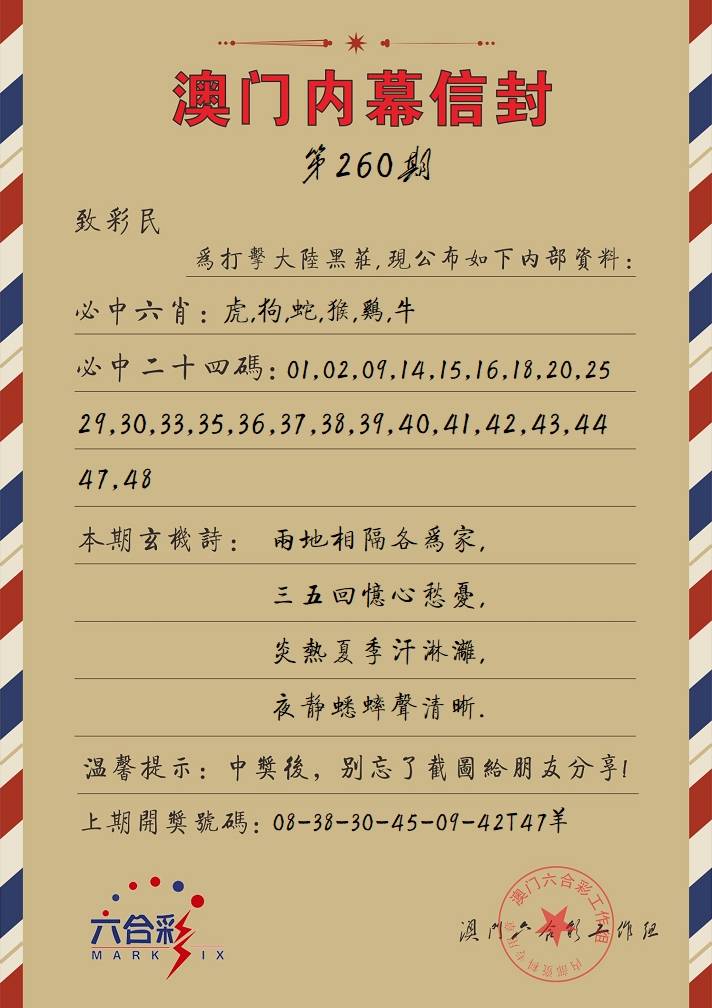 澳门内幕信封
第260期
致彩民
爲打擊大陸黑莊,現公布如下内部資料:
必中六肖:虎,狗,蛇,猴,鷄,牛
必中二十四碼:01,02,09,14,15,16,18,20,25
29,30,33,35,36,37,38,39,40,41,42,43,44
47,48
本期玄機詩: 兩地相隔各爲家,
三五回憶心愁憂,
炎熱夏季汗淋灕,
夜静蟋蟀聲清晰.
温馨提示:中獎後,别忘了截圖給朋友分享!
上期開獎號碼:08-38-30-45-09-42T47羊
六合彩
MARK SIX
澳门六合彩工作组
澳门六合彩工作组
内部资料专用章